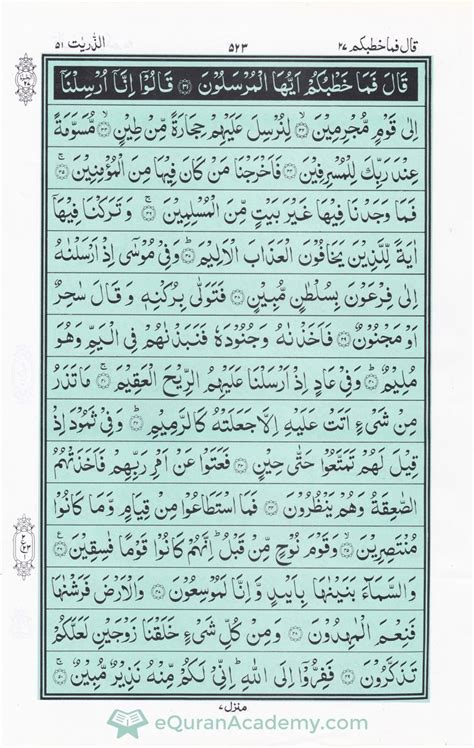 قال فما خطبكم ٢٧
٥٢٣
الذّٰريٰت ٥١
قَالَ فَمَا خَطْبُكُمْ اَيُّهَا الْمُرْسَلُوْنَ ﴿٣١﴾ قَالُوْۤا اِنَّاۤ اُرْسِلْنَاۤ
اِلٰى قَوْمٍ مُّجْرِمِيْنَ ﴿٣٢﴾ لِنُرْسِلَ عَلَيْهِمْ حِجَارَةً مِّنْ طِيْنٍ ﴿٣٣﴾ مُّسَوَّمَةً
عِنْدَ رَبِّكَ لِلْمُسْرِفِيْنَ ﴿٣٤﴾ فَاَخْرَجْنَا مَنْ كَانَ فِيْهَا مِنَ الْمُؤْمِنِيْنَ ﴿٣٥﴾
فَمَا وَجَدْنَا فِيْهَا غَيْرَ بَيْتٍ مِّنَ الْمُسْلِمِيْنَ ﴿٣٦﴾ وَتَرَكْنَا فِيْهَاۤ
اٰيَةً لِّلَّذِيْنَ يَخَافُوْنَ الْعَذَابَ الْاَلِيْمَ ﴿٣٧﴾ وَفِيْ مُوْسٰۤى اِذْ اَرْسَلْنٰهُ
اِلٰى فِرْعَوْنَ بِسُلْطٰنٍ مُّبِيْنٍ ﴿٣٨﴾ فَتَوَلّٰى بِرُكْنِهٖ وَقَالَ سٰحِرٌ
اَوْ مَجْنُوْنٌ ﴿٣٩﴾ فَاَخَذْنٰهُ وَجُنُوْدَهٗ فَنَبَذْنٰهُمْ فِي الْيَمِّ وَهُوَ
مُلِيْمٌ ﴿٤٠﴾ وَفِيْ عَادٍ اِذْ اَرْسَلْنَا عَلَيْهِمُ الرِّيْحَ الْعَقِيْمَ ﴿٤١﴾ مَا تَذَرُ
مِنْ شَيْءٍ اَتَتْ عَلَيْهِ اِلَّا جَعَلَتْهُ كَالرَّمِيْمِ ﴿٤٢﴾ وَفِيْ ثَمُوْدَ اِذْ
قِيْلَ لَهُمْ تَمَتَّعُوْا حَتّٰى حِيْنٍ ﴿٤٣﴾ فَعَتَوْا عَنْ اَمْرِ رَبِّهِمْ فَاَخَذَتْهُمُ
الصّٰعِقَةُ وَهُمْ يَنْظُرُوْنَ ﴿٤٤﴾ فَمَا اسْتَطَاعُوْا مِنْ قِيَامٍ وَّمَا كَانُوْا
مُنْتَصِرِيْنَ ﴿٤٥﴾ وَقَوْمَ نُوْحٍ مِّنْ قَبْلُ اِنَّهُمْ كَانُوْا قَوْمًا فٰسِقِيْنَ ﴿٤٦﴾
وَالسَّمَآءَ بَنَيْنٰهَا بِاَيْىدٍ وَّاِنَّا لَمُوْسِعُوْنَ ﴿٤٧﴾ وَالْاَرْضَ فَرَشْنٰهَا
فَنِعْمَ الْمٰهِدُوْنَ ﴿٤٨﴾ وَمِنْ كُلِّ شَيْءٍ خَلَقْنَا زَوْجَيْنِ لَعَلَّكُمْ
تَذَكَّرُوْنَ ﴿٤٩﴾ فَفِرُّوْۤا اِلَى اللّٰهِ اِنِّيْ لَكُمْ مِّنْهُ نَذِيْرٌ مُّبِيْنٌ ﴿٥٠﴾
منزل ٧
eQuranAcademy.com